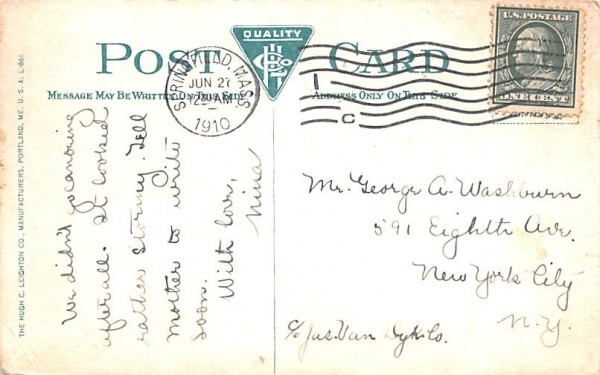 POST CARD
QUALITY
HLCo
MESSAGE MAY BE WRITTEN ON THIS SIDE
ADDRESS ONLY ON THIS SIDE
SPRINGFIELD, MASS.
JUN 27
12 - AM
1910
1
C
U.S. POSTAGE
ONE CENT
THE HUGH C. LEIGHTON CO., MANUFACTURERS, PORTLAND, ME. U.S.A.
We didn't go canoeing
after all. It looked
rather stormy. Tell
Mother to write
soon.
With love,
Nina
Mr. George A. Washburn
591 Eighth Ave.
New York City
N.Y.
c/o Jas. Van Dyk Co.